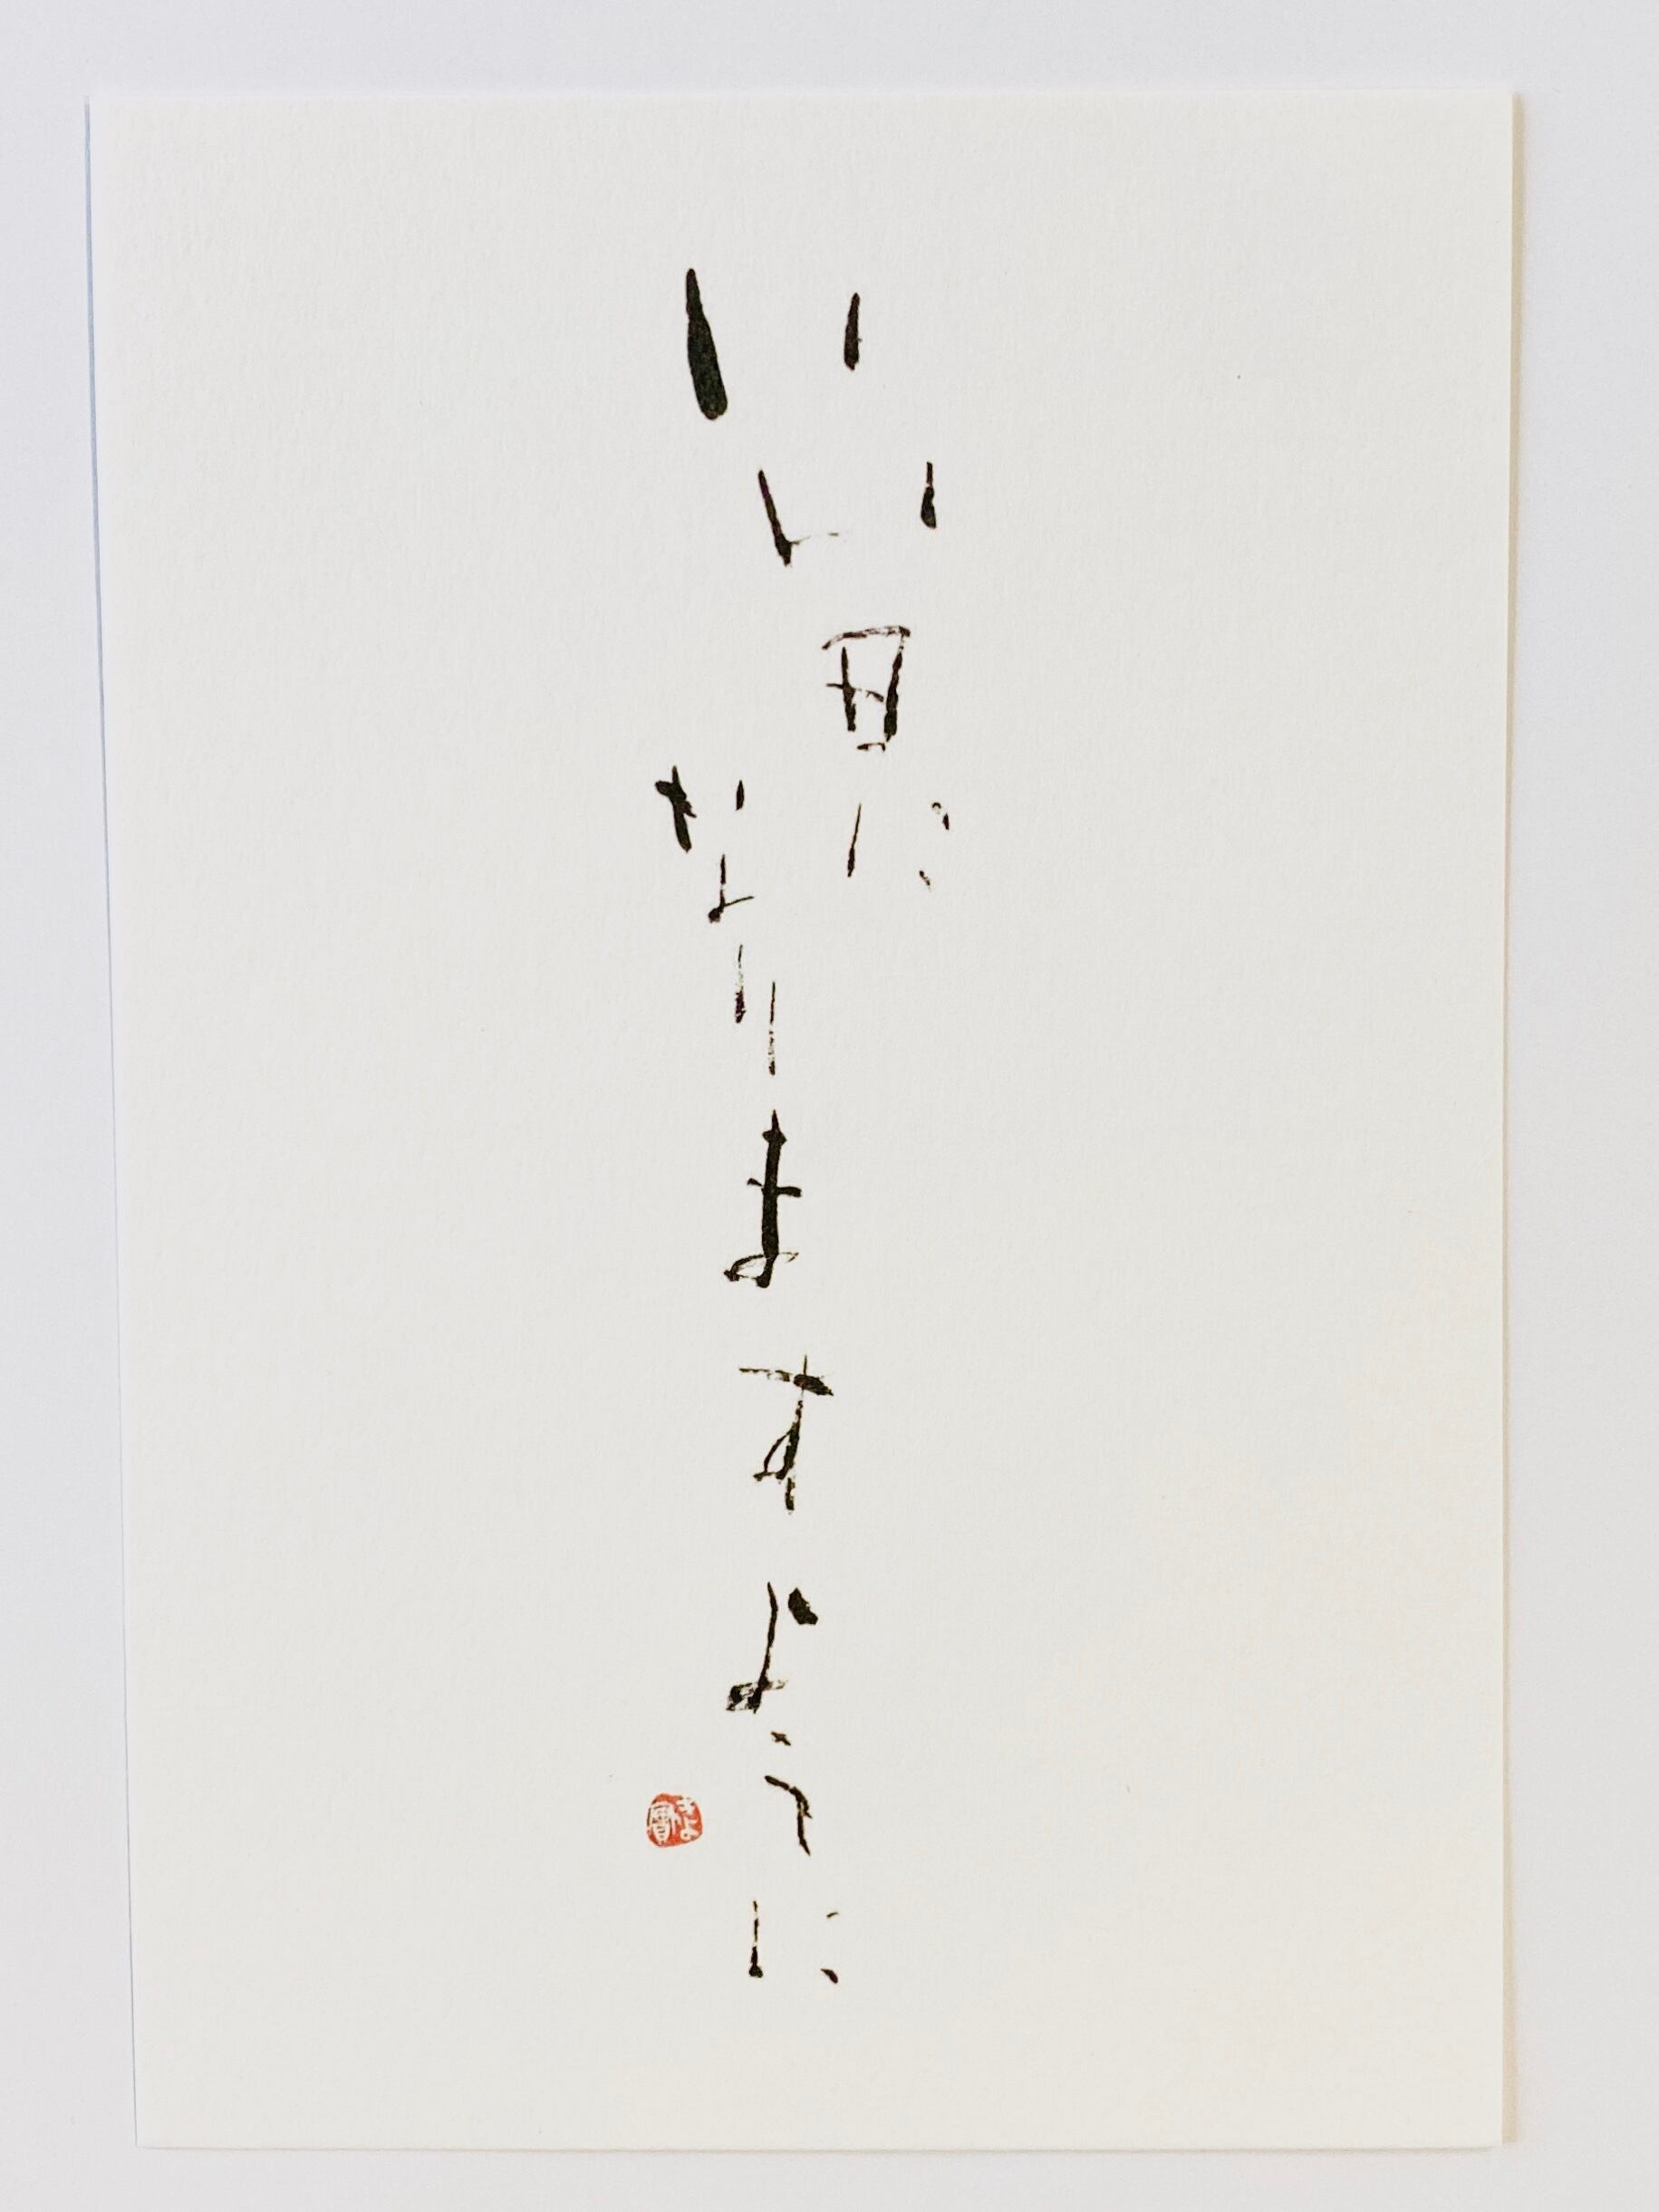 いい日に
なりますように